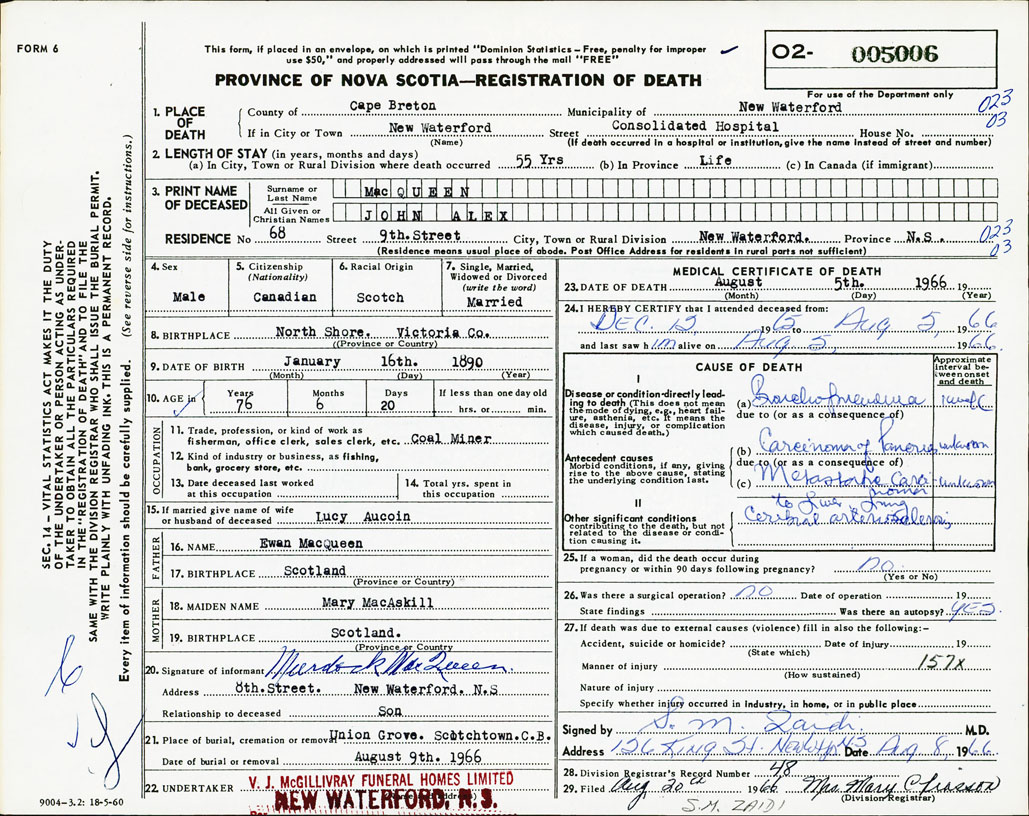 FORM 6
This form, if placed in an envelope, on which is printed "Dominion Statistics – Free, penalty for improper
use $50," and properly addressed will pass through the mail "FREE"
O2- 005006
For use of the Department only
PROVINCE OF NOVA SCOTIA—REGISTRATION OF DEATH
SEC. 14 – VITAL STATISTICS ACT MAKES IT THE DUTY
OF THE UNDERTAKER OR PERSON ACTING AS UNDER-
TAKER TO OBTAIN ALL THE PARTICULARS REQUIRED
IN THE "REGISTRATION OF DEATH" AND TO FILE THE
SAME WITH THE DIVISION REGISTRAR WHO SHALL ISSUE THE BURIAL PERMIT.
WRITE PLAINLY WITH UNFADING INK. THIS IS A PERMANENT RECORD.
Every item of information should be carefully supplied. (See reverse side for instructions.)
1. PLACE OF DEATH
County of Cape Breton Municipality of New Waterford 023
03
If in City or Town New Waterford Street Consolidated Hospital House No.
(Name) (If death occurred in a hospital or institution, give the name instead of street and number)
2. LENGTH OF STAY (in years, months and days)
(a) In City, Town or Rural Division where death occurred 55 Yrs (b) In Province Life (c) In Canada (if immigrant)
3. PRINT NAME OF DECEASED
Surname or Last Name MacQUEEN
All Given or Christian Names JOHN ALEX
RESIDENCE No 68 Street 9th.Street City, Town or Rural Division New Waterford. Province N.S. 023
03
(Residence means usual place of abode. Post Office Address for residents in rural parts not sufficient)
4. Sex
Male
5. Citizenship
(Nationality)
Canadian
6. Racial Origin
Scotch
7. Single, Married,
Widowed or Divorced
(write the word)
Married
8. BIRTHPLACE North Shore. Victoria Co.
((Province or Country)
9. DATE OF BIRTH January 16th. 1890
(Month) (Day) (Year)
10. AGE in
Years Months Days If less than one day old
76 6 20 hrs. or min.
OCCUPATION
11. Trade, profession, or kind of work as
fisherman, office clerk, sales clerk, etc. Coal Miner
12. Kind of industry or business, as fishing,
bank, grocery store, etc.
13. Date deceased last worked
at this occupation
14. Total yrs. spent in
this occupation
15. If married give name of wife
or husband of deceased Lucy Aucoin
FATHER
16. NAME Ewan MacQueen
17. BIRTHPLACE Scotland
(Province or Country)
MOTHER
18. MAIDEN NAME Mary MacAskill
19. BIRTHPLACE Scotland.
(Province or Country)
20. Signature of informant Murdock MacQueen.
Address 8th.Street. New Waterford. N.S
Relationship to deceased Son
21. Place of burial, cremation or removal Union Grove. Scotchtown.C.B.
Date of burial or removal August 9th. 1966
22. UNDERTAKER V. J. McGILLIVRAY FUNERAL HOMES LIMITED
NEW WATERFORD, N.S.
9004–3.2: 18-5-60
MEDICAL CERTIFICATE OF DEATH
23. DATE OF DEATH August 5th. 1966 19
(Month) (Day) (Year)
24. I HEREBY CERTIFY that I attended deceased from:
DEC. 12 1965 to Aug 5, 1966
and last saw him alive on Aug 5, 1966.
CAUSE OF DEATH
Approximate
interval be-
tween onset
and death
I
Disease or condition directly lead-
ing to death (This does not mean
the mode of dying, e.g., heart fail-
ure, asthenia, etc. It means the
disease, injury, or complication
which caused death.)
(a) Bronchopneumonia 1 week
due to (or as a consequence of)
Antecedent causes
Morbid conditions, if any, giving
rise to the above cause, stating
the underlying condition last.
(b) Carcinoma of Pancreas unknown
due to (or as a consequence of)
(c) Metastatic Carcinoma unknown
to Liver, Lung
II
Other significant conditions
contributing to the death, but not
related to the disease or condi-
tion causing it.
Cerebral arteriosclerosis
25. If a woman, did the death occur during
pregnancy or within 90 days following pregnancy? no.
(Yes or No)
26. Was there a surgical operation? no Date of operation 19
State findings Was there an autopsy? YES.
27. If death was due to external causes (violence) fill in also the following:–
Accident, suicide or homicide? Date of injury 19
(State which)
157x
Manner of injury
(How sustained)
Nature of injury
Specify whether injury occurred in Industry, in home, or in public place
Signed by S. M. Zaidi M.D.
Address 126 King St. Date Aug 8, 1966.
28. Division Registrar's Record Number 48
29. Filed Aug 20th 1966 Mrs Mary C
(Division Registrar)
S.M. ZAIDI